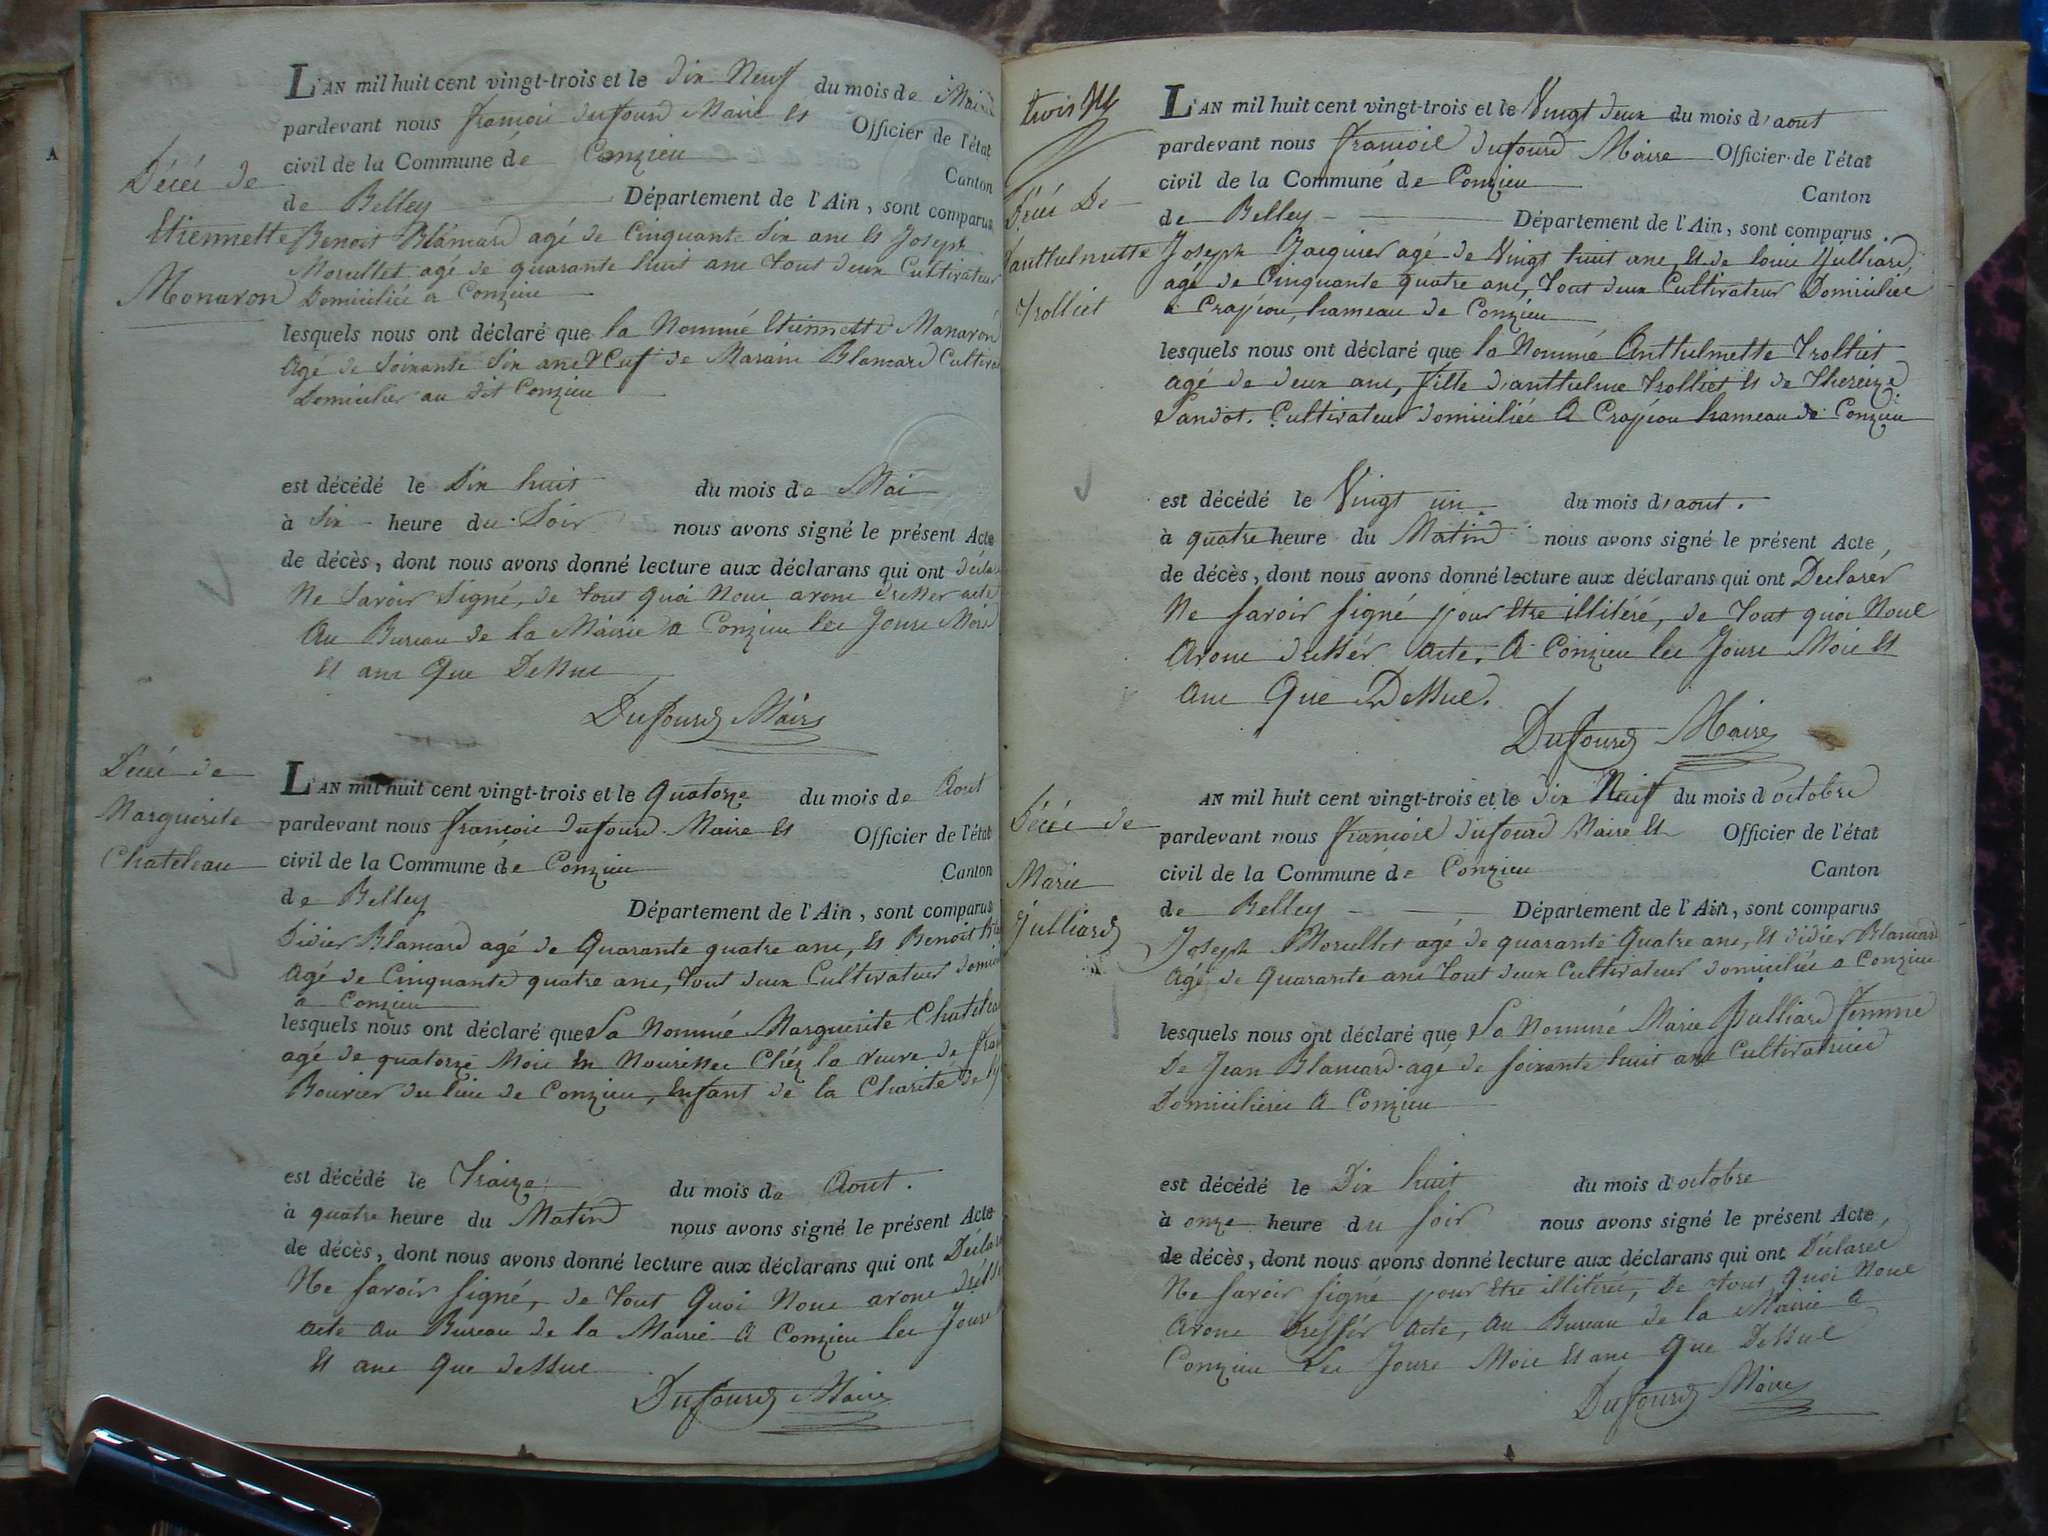 L'AN mil huit cent vingt-trois et le dix Neuf du mois de Mai
pardevant nous françois dufourd Maire et Officier de l'état
civil de la Commune de Conzieu Canton
de Belley Département de l'Ain, sont comparus
Décé de
Etiennette
Monaron
Benoit Blancard agé de Cinquante Six ans et Joseph
Morullet agé de quarante huit ans tout deux Cultivateur
Domicilié a Conzieu
lesquels nous ont déclaré que la Nommé Etiennette Manaron
agé de Soixante Six ans de Blancard
Domicilier au dit Conzieu
est décédé le Dix huit du mois de Mai
à Six heure du Soir nous avons signé le présent Acte
de décès, dont nous avons donné lecture aux déclarans qui ont
Ne Savoir Signé, de tout quoi Nous avons dresser acte
Au Bureau de la Mairie a Conzieu les Jours Mois
Et ans Que Dessus
Dufourd Maire
Décé de
Marguerite
Chateleau
L'AN mil huit cent vingt-trois et le Quatorze du mois de Aout
pardevant nous françois dufourd Maire et Officier de l'état
civil de la Commune de Conzieu Canton
de Belley Département de l'Ain, sont comparus
Didier Blancard agé de Quarante quatre ans, et Benoit
agé de Cinquante quatre ans, tout deux Cultivateur
a Conzieu
lesquels nous ont déclaré que La Nommé Marguerite
agé de quatorze Mois en Nourisse Chéz la veuve de
Bouvier du lieu de Conzieu, Enfant de la Charité de
est décédé le traize du mois de Aout.
à quatre heure du Matin nous avons signé le présent Acte
de décès, dont nous avons donné lecture aux déclarans qui ont
Ne savoir signé, de tout Quoi Nous avons
acte au Bureau de la Mairie a Conzieu les Jours
Et ans que dessus
Dufourd Maire
trois
Décé De
anthelmette
trolliet
L'AN mil huit cent vingt-trois et le Vingt deux du mois d'aout
pardevant nous françois dufourd Maire Officier de l'état
civil de la Commune de Conzieu Canton
de Belley Département de l'Ain, sont comparus
Joseph Jaquier agé de Vingt huit ans, et de louis Julliard
agé de Cinquante quatre ans, tout deux Cultivateur Domicilié
a Crapéou, hameau de Conzieu
lesquels nous ont déclaré que la Nommé Anthelmette trolliet
agé de deux ans, fille d'anthelme trolliet et de thereize
Cultivateur domicilié A Crapéou hameau de Conzieu
est décédé le Vingt un du mois d'aout.
à quatre heure du Matin nous avons signé le présent Acte,
de décès, dont nous avons donné lecture aux déclarans qui ont Déclarer
Ne savoir signé pour Etre illitéré, de tout quoi Nous
Avons dressér acte. A Conzieu les Jours Mois et
ans Que Dessus.
Dufourd Maire
Décé de
Marie
Julliard
AN mil huit cent vingt-trois et le dix Neuf du mois d'octobre
pardevant nous françois dufourd Maire et Officier de l'état
civil de la Commune de Conzieu Canton
de Belley Département de l'Ain, sont comparus
Joseph Morullet agé de quarante Quatre ans, et didier Blancard
Agé de Quarante ans tout deux Cultivateur domicilié a Conzieu
lesquels nous ont déclaré que La Nommé Marie Julliard femme
De Jean Blancard agé de soixante huit ans Cultivatrice
Domiciliée A Conzieu
est décédé le Dix huit du mois d'octobre
à onze heure du soir nous avons signé le présent Acte,
de décès, dont nous avons donné lecture aux déclarans qui ont Déclaré
Ne savoir signé pour Etre illitéré, De tout Quoi Nous
Avons Dressér Acte, Au Bureau de la Mairie a
Conzieu Les Jours Mois et ans Que Dessus
Dufourd Maire